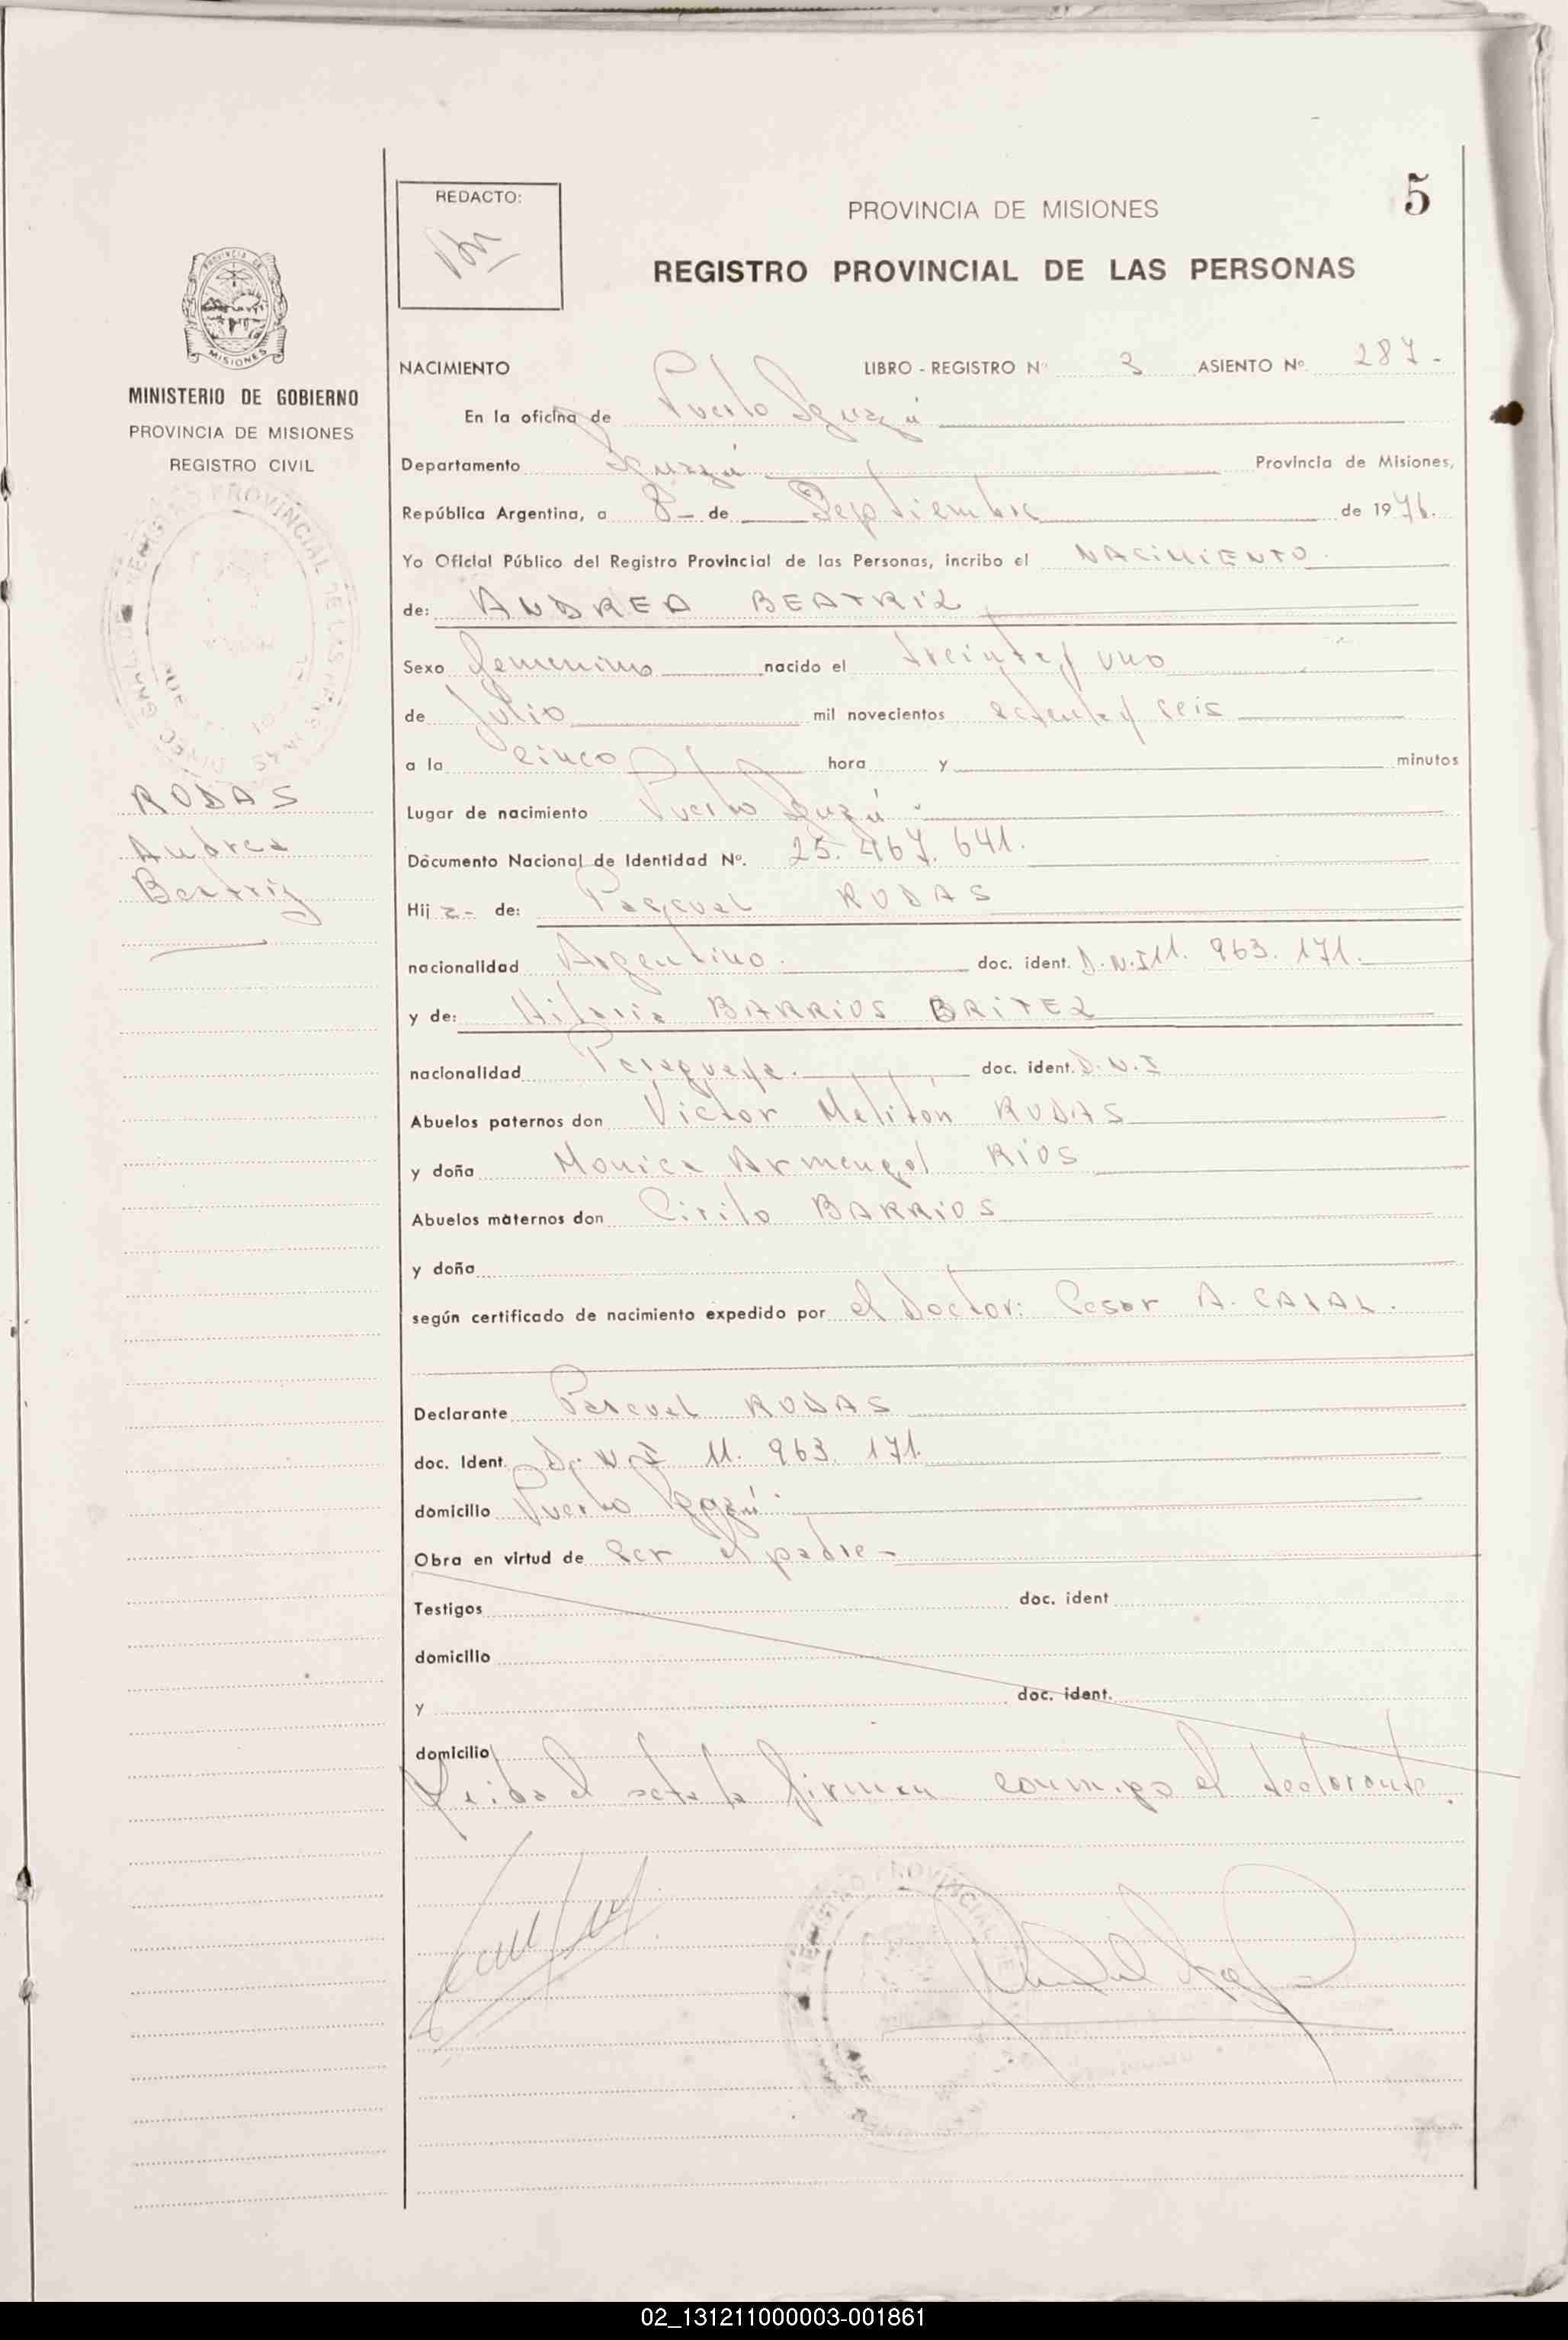 REDACTO:
PROVINCIA DE MISIONES
5
REGISTRO PROVINCIAL DE LAS PERSONAS
MISIONES
MINISTERIO DE GOBIERNO
PROVINCIA DE MISIONES
REGISTRO CIVIL
RODAS
Andrea
Beatriz
NACIMIENTO LIBRO - REGISTRO Nº 3 ASIENTO Nº 287-
En la oficina de Puerto Iguazú
Departamento Iguazú Provincia de Misiones,
República Argentina, a 8- de Septiembre de 1976.
Yo Oficial Público del Registro Provincial de las Personas, incribo el NACIMIENTO.
de: ANDREA BEATRIZ
Sexo femenino nacido el treinta y uno
de Julio mil novecientos setenta y seis
a la cinco hora y minutos
Lugar de nacimiento Puerto Iguazú.
Documento Nacional de Identidad Nº. 25.467.641.
Hij a- de: Pascual RODAS
nacionalidad Argentino. doc. ident. D.N.I 11.963.171.
y de: Hilaria BARRIOS BRITEZ
nacionalidad Paraguaya. doc. ident. D.N.I
Abuelos paternos don Victor Melitón RODAS
y doña Monica Armengol RIOS
Abuelos maternos don Cirilo BARRIOS
y doña
según certificado de nacimiento expedido por el Doctor: Cesar A.
Declarante Pascual RODAS
doc. Ident. D.N.I 11.963.171.
domicilio Puerto Iguazú.
Obra en virtud de ser el padre-
Testigos doc. ident
domicilio
y doc. ident.
domicilio
Leida el acta la firman conmigo el declarante.
02_131211000003-001861